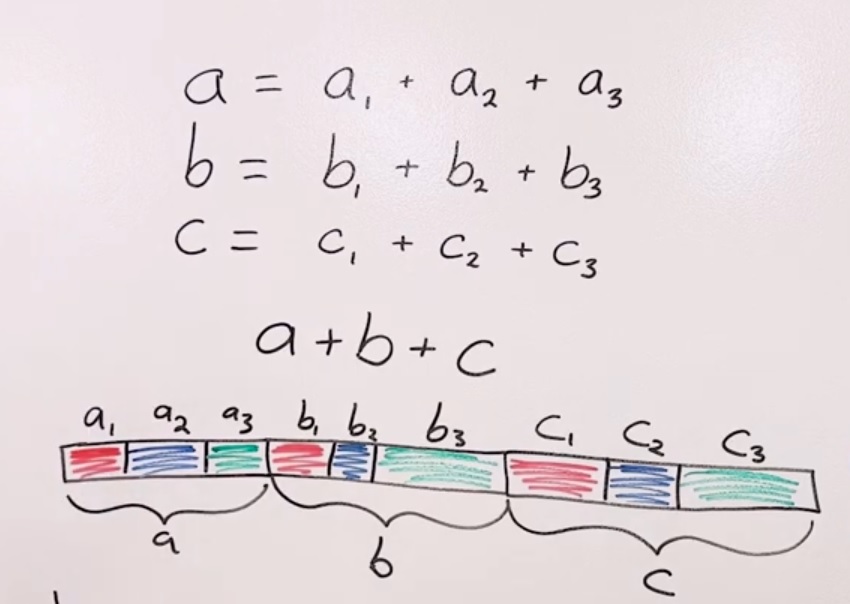 a = a₁ + a₂ + a₃
b = b₁ + b₂ + b₃
c = c₁ + c₂ + c₃
a + b + c
a₁ a₂ a₃ b₁ b₂ b₃ c₁ c₂ c₃
a b c